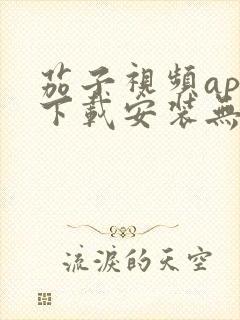 茄子視頻ap
下載安裝無
流淚的天空